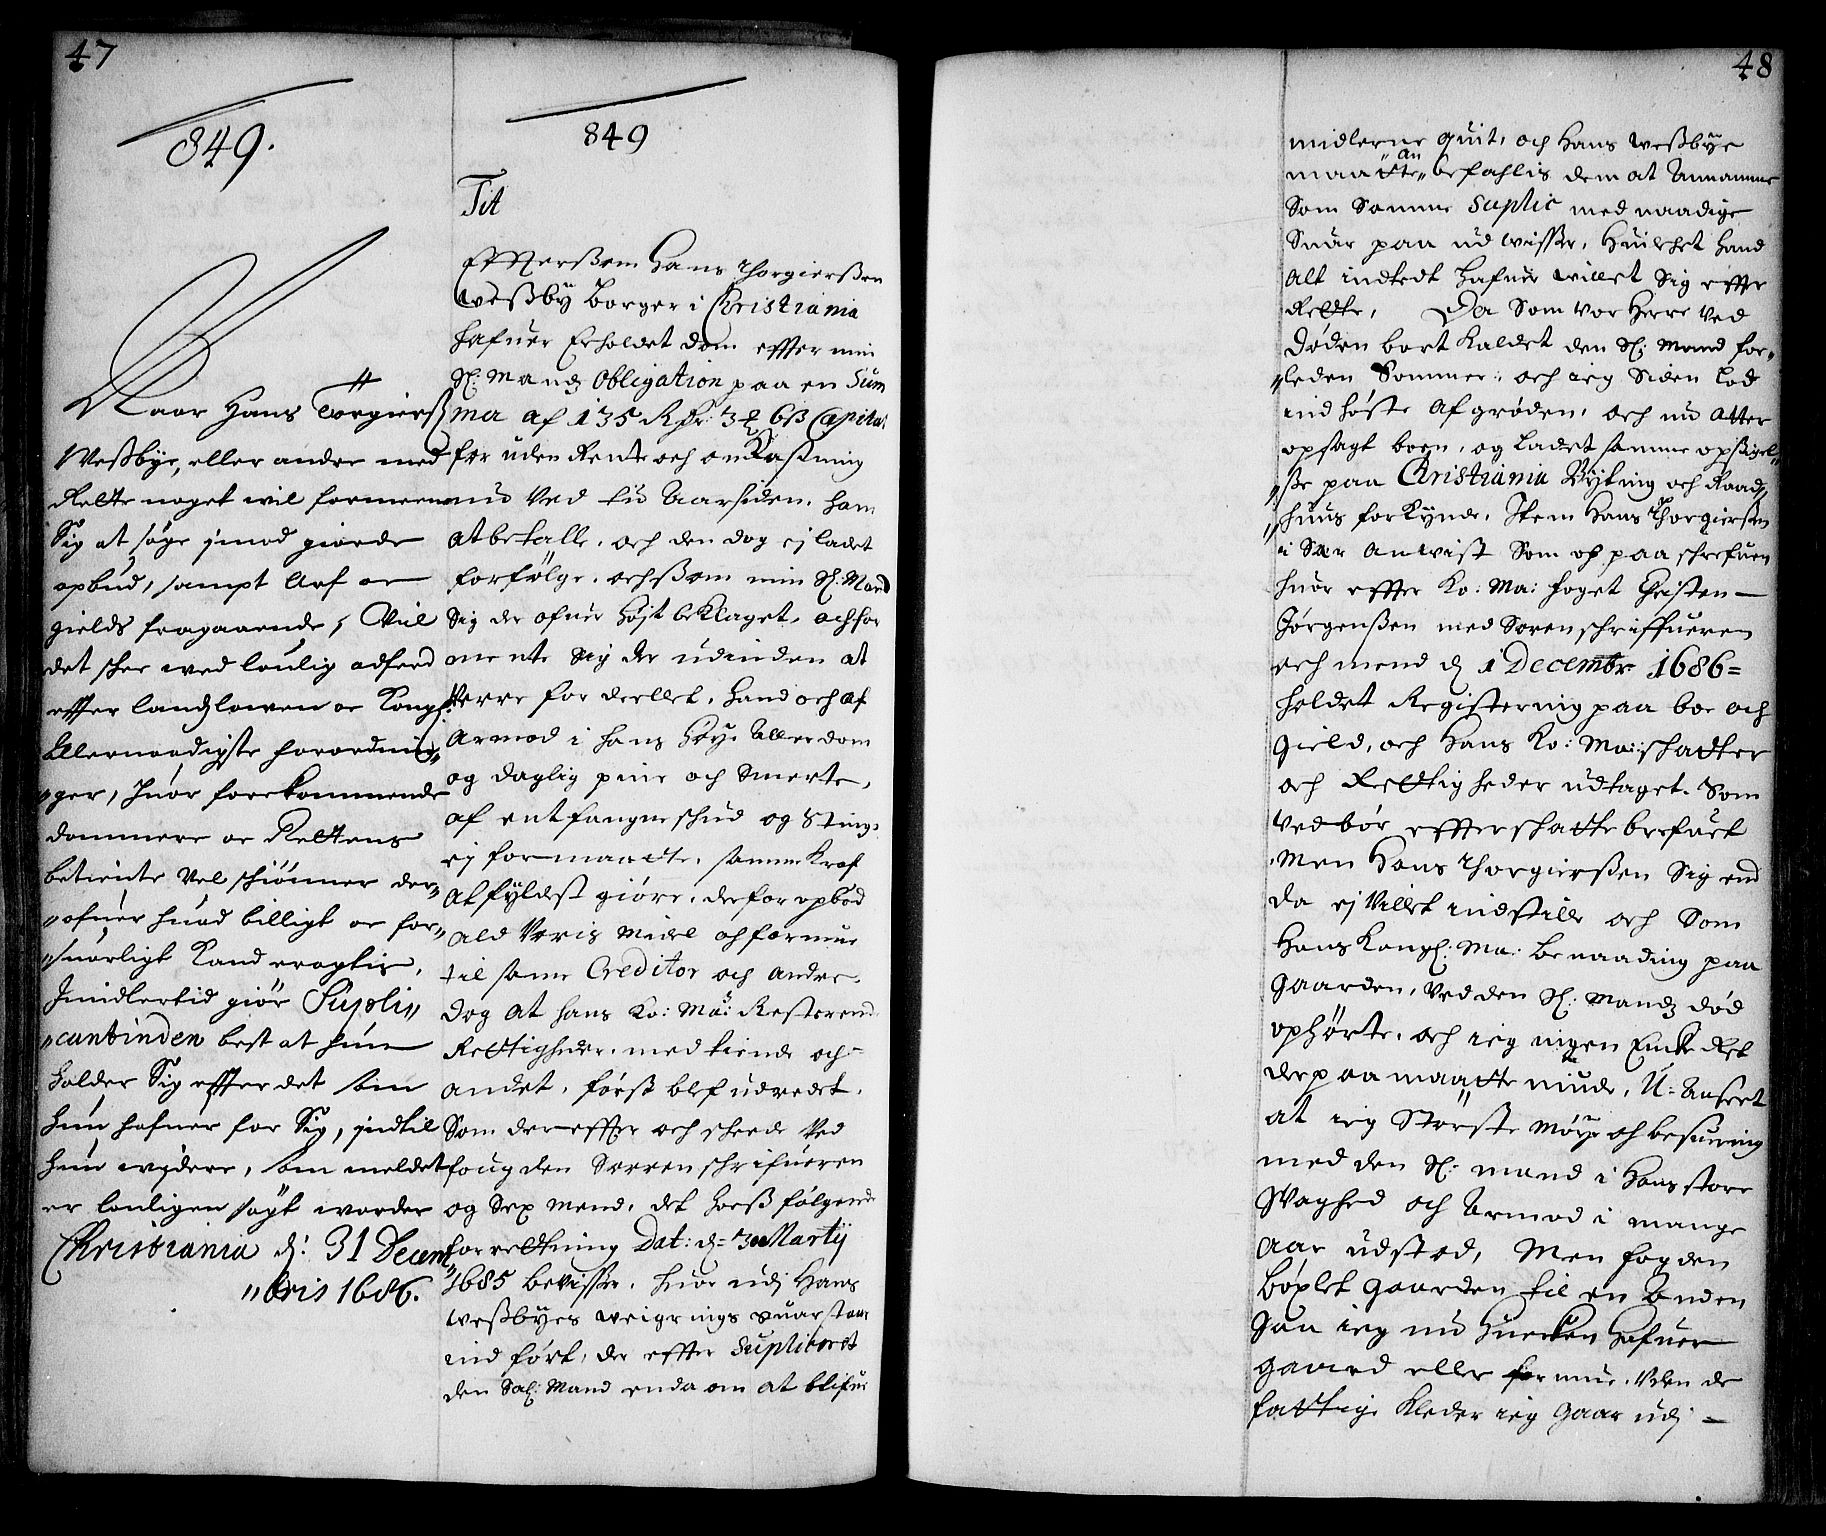 47
849.
Naar Hans Torgierß
Weßbye, eller andre med
Rette noget wil formeene
Sig at søge imod giorde
opbud, sampt Arf oc
gields fragaaende, Vil
det schee wed loulig adferd
effter landzlowen oc Kongl:
Allernaadigste forordnin„
„ger, huor forekommende
dommere oc Rettens
betiente vel schiönner der„
„ofuer huad billigt oc for„
„suarligt Kand eragtis,
Imidlertid giør Supli„
„cantinden best at hun
holder Sig effter det som
hun hafuer for Sig, indtil
hun widere, som meldet
er louligen søgt worder
Christiania d: 31 Decem„
„bris 1686.
849
Tit
Effterßom Hans Thorgierßen
Weßby borger i Christiania
hafuer Erholdet dom effter min
Sl: Mandz Obligation paa en Sum
mer af 135 Rdr: 3 ℔ 6 ß Capital
foruden Rente och omkastning
nu ved tu Aarsiden, ham
at betalle, och den dog ej ladet
forfølge, och ßom min Sl: Mand
Sig der ofuer høyt beklaget, och for
mente Sig der udinden at
Verre fordeellet, hand och af
Armod i hans høye Allerdom
og daglig piine och Smerte,
af entfangne schud og Sting,
ej formaatte, samme Kraf
at fyldest giøre, derfor opbød
ald Voris midel och formue
til same Creditor och andre,
Dog at hans Ko: Ma: Resterend
Rettigheder, med tiende och
andet, først blef udredet,
Som der effter och skeede Ved
fougden Sorrenschrifueren
og Sex mend, det hoeß følgende
forretning Dat: d= 30 Martij
1685 beviisser, huor udj Hans
Weßbyes weigrings suar staar
indført, der effter Supliceret
den Sal: Mand enda om at blifue
48
midlerne quit, och Hans weßbye
maatte „an„ befahlis dem at Annamme
Som Samme Suplic med naadige
Suar paa udwisser, huilchet hand
Alt indtedt hafuer willet Sig effter
Rette, Da Som vor Herre ved
Døden bort kaldet den Sl: Mand for„
„leden Sommer, och ieg Siden lod
indhøste Afgrøden, och nu atter
opsagt boen, og ladet samme opsigel„
„ße paa Christiania Byting och Raad„
„huus forkynde, Item Hans Thorgierßen
i Sær anvist Som och paaschrefuen
huor effter Ko: Ma: foget Christen
Jørgenßen med Sorenschriffueren
och mend d 1 Decembr 1686=
holdet Registering paa boe och
Gield, och Hans Ko: Ma: schatter
och Rettigheder udtaget, Som
vedbør effter schattebrefuet
Men Hans Thorgierßen Sig end
da ej Villet indstille och Som
Hans Kongl: Ma: benaading paa
Gaarden, ved den Sl: Mandz død
ophørte, och ieg ingen Enke Ret
derpaa maatte niude, U-Anseet
at ieg Største Møye och besuering
med den Sl: mand i Hans store
Svaghed och Armod i mange
Aar udstod, Men fogden
bøxlet Gaarden til en Anden
Saa ieg nu huerken hafuer
gaard eller formue, Uden de
fattige Kleder ieg Gaar udj